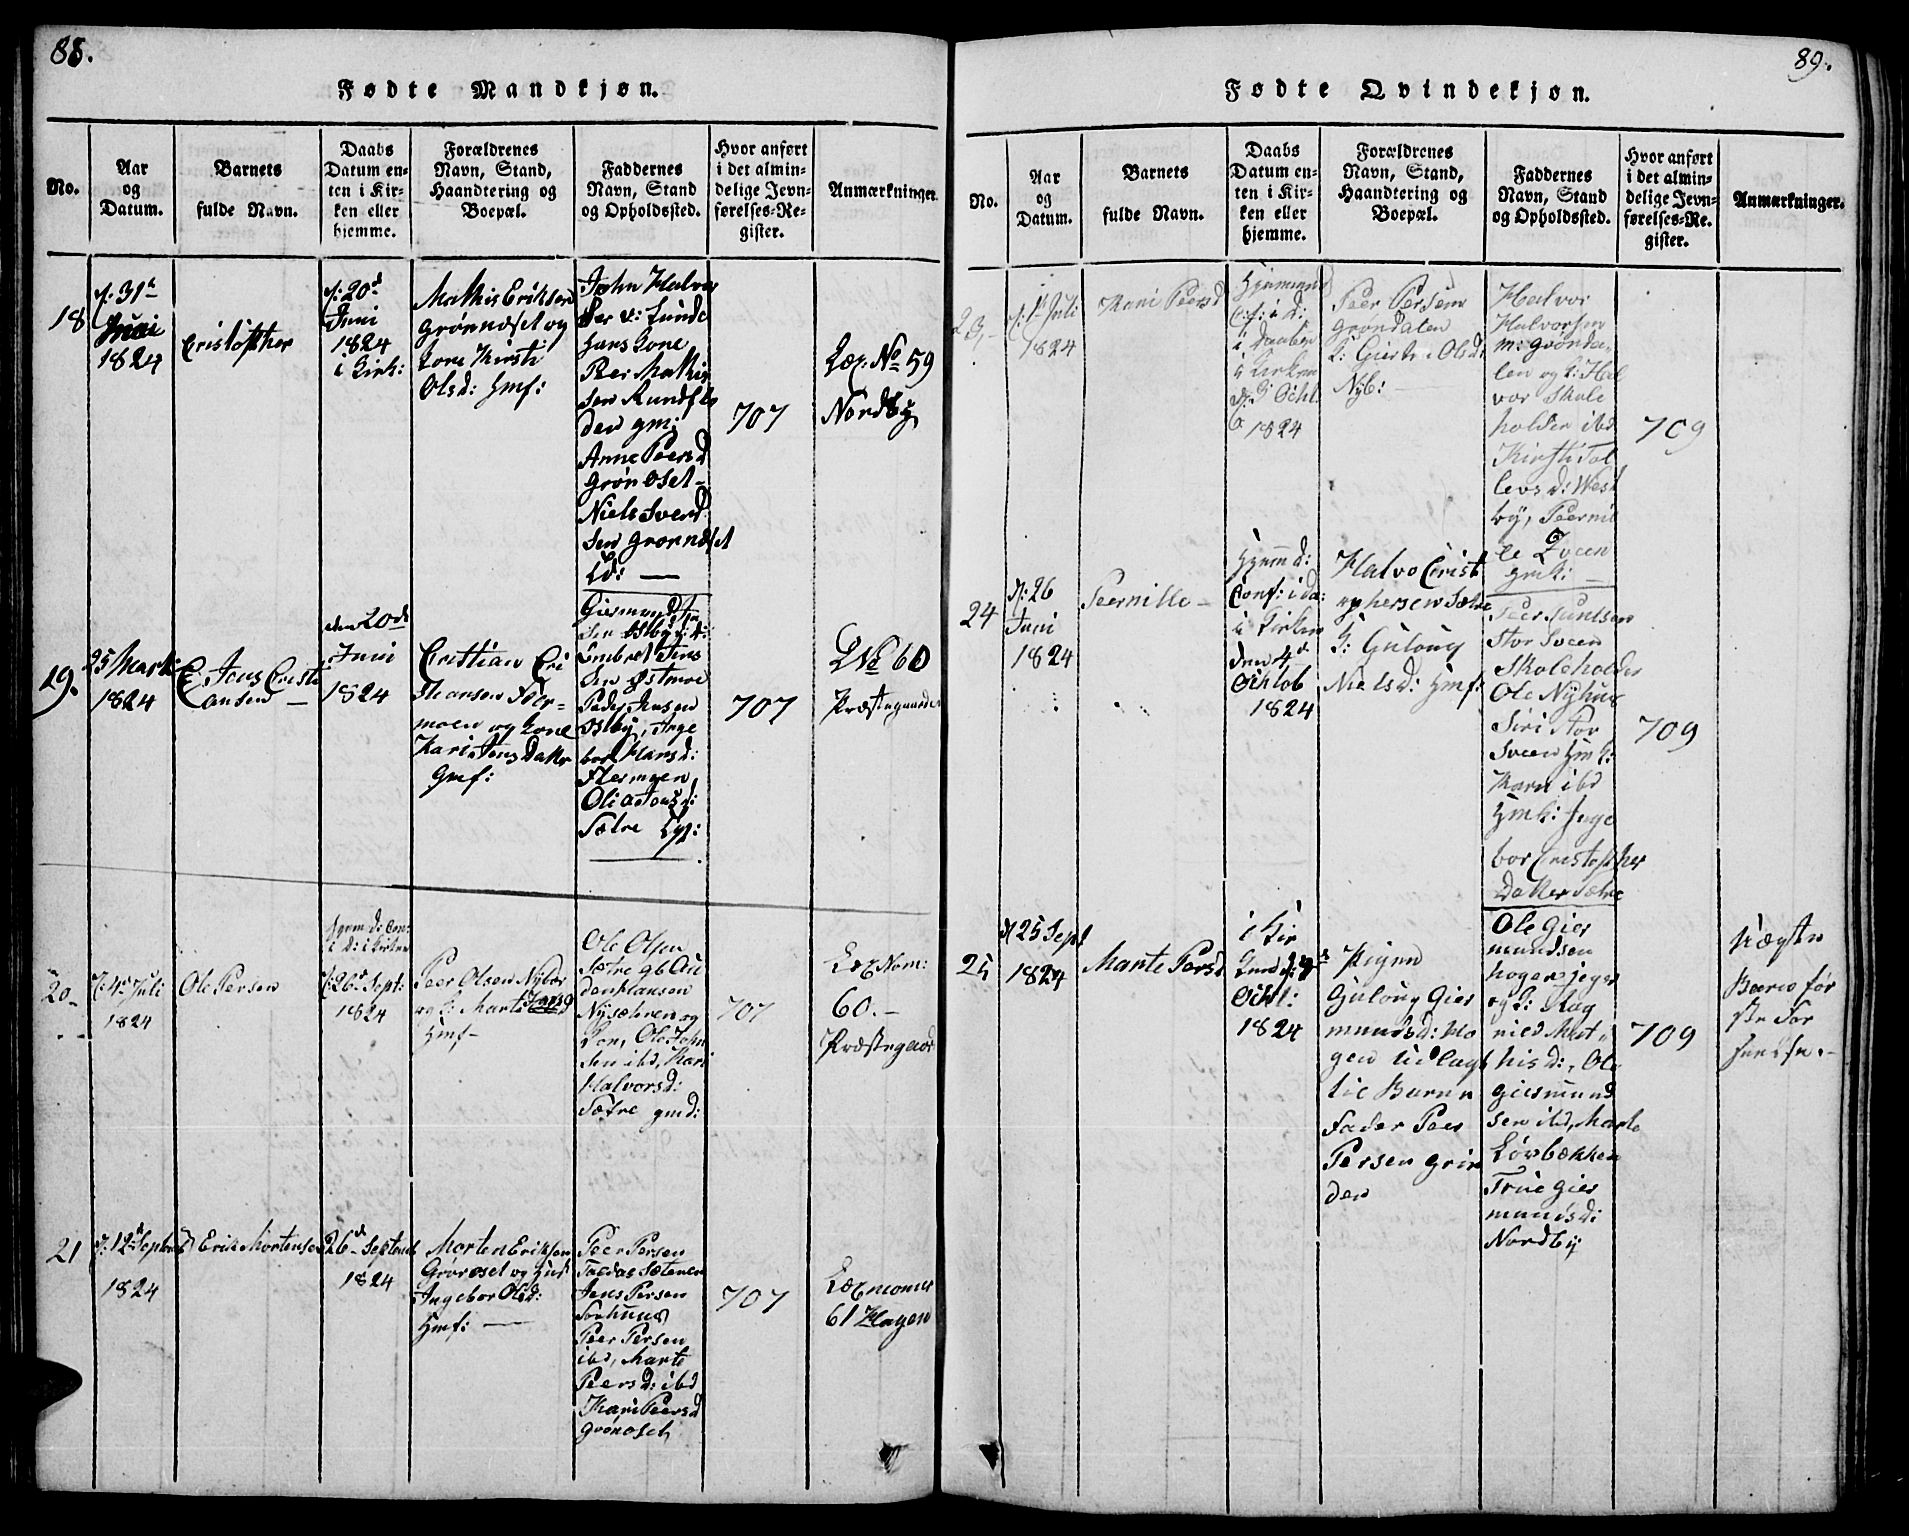 88.
Fødte Mandkjøn.
No.
Aar
og
Datum.
Barnets
fulde Navn.
Daabs
Datum en-
ten i Kir-
ken eller
hjemme.
Forældrenes
Navn, Stand,
Haandtering og
Boepæl.
Faddernes
Navn, Stand
og Opholdssted.
Hvor anført
i det almin-
delige Jevn-
førelses-Re-
gister.
Anmærkninger.
18
d: 31te
1824
Cristopher
d: 20d
Juni
1824
i Kirk:
Mathis Eriksen
Grønoset og
Kone Kirsti
Olsd: Hmf:
John Halvor
Hans Kone
Peer Mathis
sen Rundflo
den gm:
Anne Peersd
Grønoset-
Niels Svend
sen Grønoset
707
Læz: No 59
Nordby
19.
25 Marti
1824
Jons Cristi
ansen
den 20de
Juni
1824
Cristian Cri
stiansen FlER-
moen og Kone
Kari Jons Datter
Gmf:
sen Østbye
Embret Jens
sen Østmoe
Østby, Inge
bor Hansd:
Flermoen
Olia Jonsd:
Sætre
707
No 60
Præstegaarden
20
d: 4d Juli
1824
Ole Persen
Hjem d: Con:
i D: i Kirken
d: 26d Sept:
1824
Peer Olsen Nyber
og K: Marte Jonsd
Hmf-
Ole Olsen
Sætre og Au
den Hansen
Nysæteren og
Kone, Ole John
sen ibd, Kari
Halvorsd:
Sætre gmd:
707
Læz Nom:
60.-
Præstegaard
21
d: 12d Septembr
1824
Erik Mortensen
26d Septemb
1824
Morten Eriksen
Grønoset og Hust
Ingebor Olsd:
Hmf:
Peer Persen
Jens Persen
Peer Persen
ibd, Marte
Peersd: ibd
Kari Peersd
Grønoset
707
Læz nomer
61 Hagen
89.
Fødte Qvindekjøn.
No.
Aar
og
Datum.
Barnets
fulde Navn.
Daabs
Datum en-
ten i Kir-
ken eller
hjemme.
Forældrenes
Navn, Stand,
Haandtering og
Boepæl.
Faddernes
Navn, Stand
og Opholdssted.
Hvor anført
i det almin-
delige Jevn-
førelses-Re-
gister.
Anmærkninger.
23
d: 1t Juli
1824
Kari Peersd
Hjemmed
Cf: i d:
i Daaben
i Kirken
d: 3 Octbl
1824
Peer Persen
Grøndalen
K: Giertru Olsd:
Nyb:
Halvor
Halvorsen
m: Grønda-
len og K: Hal
vor Skole
holder ibd
Kirsti Tol
levsd: West
by, Peernil
le Sveen
Gmk:
709
24
d: 26
Juni
1824
Peernille
Hjemd:
Conf: i da:
i Kirken
den 4d
Octob
1824
Halvo Crist
ophersen Sætre
K: Gulouy
Nielsd: Hmf:
Peer Knutsen
Stor Sveen
Skoleholder
Ole Nyhus
Siri Stor
Sveen Hmk:
Karn ibd
Hmk: Inge
bor Cristopher
Datter Sætre
709
25
d 25 Sept
1824
Marte Persd
i Kir
ken d: 4d
Octl:
1824
Pigen
Gulouy Gies
mundsd: Ho
gen Udlagt
til Barne
Fader Peer
Persen Grin
den
Ole Gies
mundsen
hogen jeger
og K: Rag
nild Mat-
hisd:, Ole
Giesmund
sen ibd, Marte
Løvbækken
True Gies
mundsd:
Nordby
709
Uægte
Barns før
ste For
seelse.-